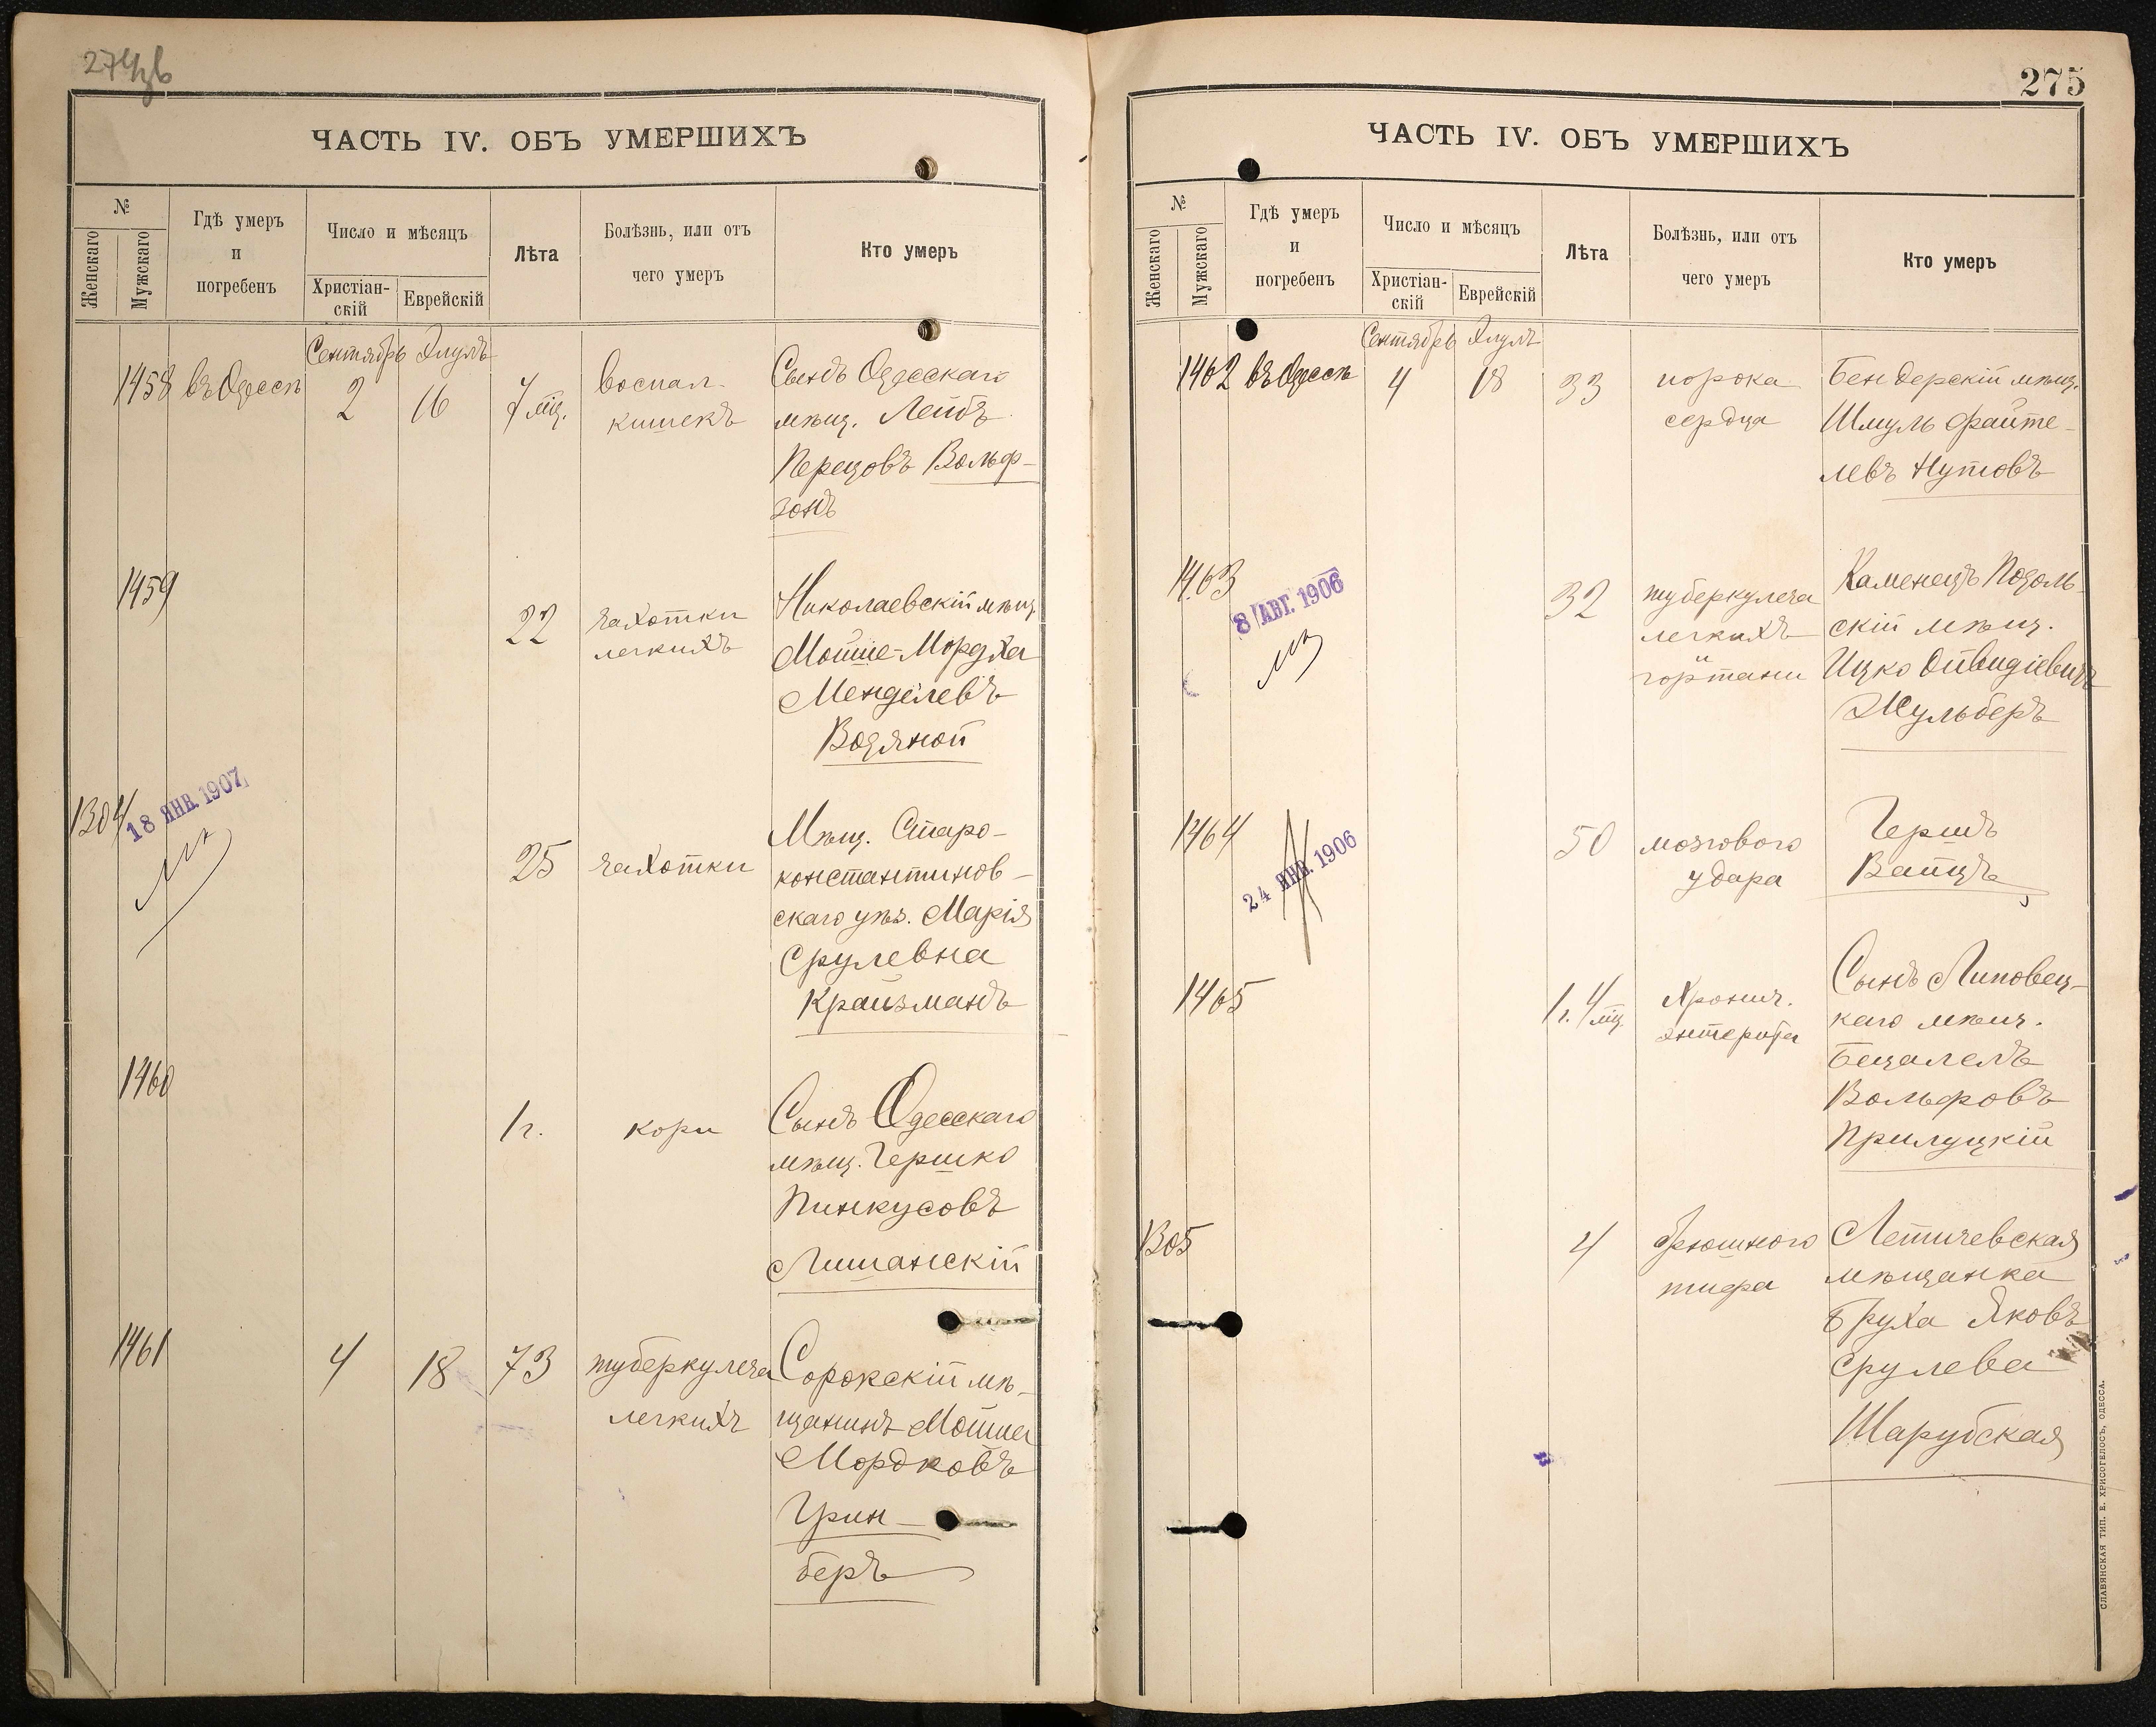 274об
ЧАСТЬ IV. ОБЪ УМЕРШИХЪ
№
Женскаго
Мужскаго
Гдѣ умеръ
и
погребенъ
Число и мѣсяцъ
Христіан-
скій
Еврейскій
Лѣта
Болѣзнь, или отъ
чего умеръ
Кто умеръ
Сентябрь Элулъ
1458 въ Одессѣ 2 16 7 мц.
воспал.
кишекъ
Сынъ Одесскаго
мѣщ. Лейбъ
Перецовъ Вольф-
зонъ
1459
22
чахотки
легкихъ
Николаевскій мѣщ.
Мойше-Мордха
Менделевъ
Водяной
1304
18 ЯНВ. 1907
25 чахотки
Мѣщ. Старо-
константинов-
скаго уѣз. Марія
Срулевна
Крайзманъ
1460
1 г. кори
Сынъ Одесскаго
мѣщ. Гершко
Пинкусовъ
Лишанскій
1461 4 18 73
туберкулеза
легкихъ
Сорокскій мѣ-
щанинъ Мойше
Мордковъ
Грин-
беръ
275
ЧАСТЬ IV. ОБЪ УМЕРШИХЪ
№
Женскаго
Мужскаго
Гдѣ умеръ
и
погребенъ
Число и мѣсяцъ
Христіан-
скій
Еврейскій
Лѣта
Болѣзнь, или отъ
чего умеръ
Кто умеръ
Сентябрь Элулъ
1462 въ Одессѣ 4 18 33
порока
сердца
Бендерскій мѣщ.
Шмуль Файте-
левъ Нутовъ
1463
8 АВГ. 1906
32
туберкулеза
легкихъ
и
гортани
Каменецъ Подоль-
скій мѣщ.
Ицко Овидіевичъ
Жульберъ
1464
24 ЯНВ. 1906
50
мозгового
удара
Гершъ
Вайцъ
1465
1 г. 4 мц.
хронич.
энтерита
Сынъ Липовец-
каго мѣщ.
Бецалелъ
Вольфовъ
Прилуцкій
1305
4
брюшного
тифа
Летичевская
мѣщанка
Бруха Яковъ
Срулева
Шарубская
СЛАВЯНСКАЯ ТИП. Е. ХРИСОГЕЛОСЪ, ОДЕССА.